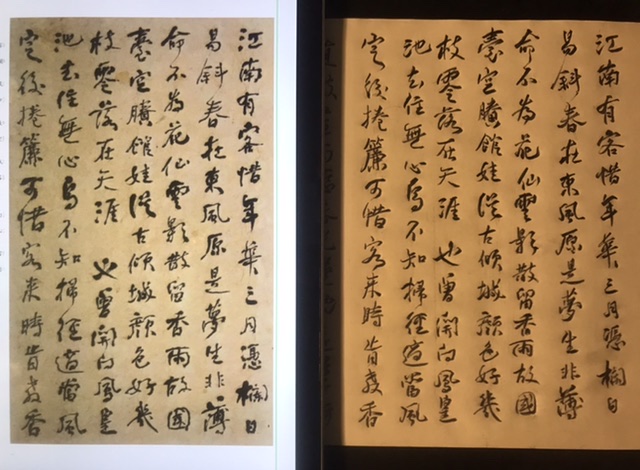 江南有客惜年華三月憑欄日
易斜春在東風原是夢生非薄
命不為花仙雲影散留香雨故國
臺空賸館娃從古傾城顏色好幾
枝零落在天涯 也曾開向鳳皇
池去住無心鳥不知掃徑適當風
定後捲簾可惜客來時肯教香
江南有客惜年華三月憑欄日
易斜春在東風原是夢生非薄
命不為花仙雲影散留香雨故國
臺空賸館娃從古傾城顏色好幾
枝零落在天涯 也曾開向鳳皇
池去住無心鳥不知掃徑適當風
定後捲簾可惜客來時肯教香